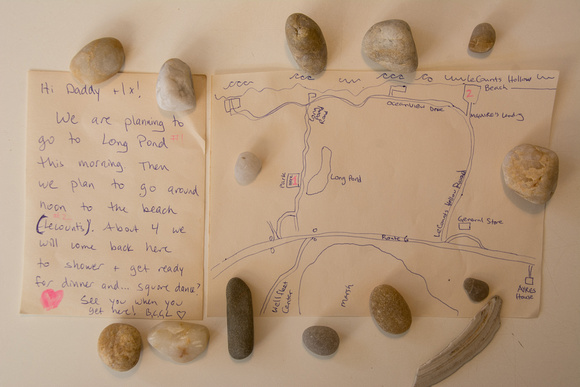 Hi Daddy + 1x!
We are planning to
go to Long Pond #1
this morning Then
we plan to go around
noon to the beach
#2
(Lecounts). About 4 we
will come back here
to shower + get ready
for dinner and... square dance?
See you when you
get here!
LeCounts Hollow
Beach
2
Oceanview Drive
Long Pond Road
Park
Long Pond
LeCounts Hollow Road
General Store
Route 6
Wellfleet
Center
Marsh
House